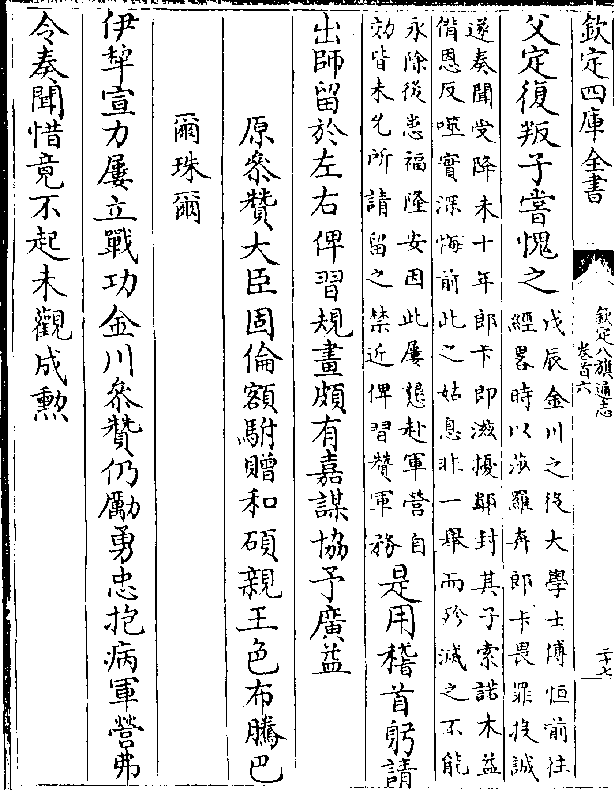 欽定四庫全書
欽定八旗通志
卷首六
二十七
父定復叛子嘗愧之
戊辰金川之役大學士傅恒前往
經畧時以莎羅奔郎卡畏罪投誠
遂奏聞受降未十年郎卡即滋擾鄰封其子索諾木益
偕恩反噬實深悔前此之姑息非一舉而殄滅之不能
永除後患福隆安因此屢懇赴軍營自
効皆未允所請留之禁近俾習贊軍務
是用稽首躬請
出師留於左右俾習規畫頗有嘉謀協予廣益
原叅贊大臣固倫額駙贈和碩親王色布騰巴
爾珠爾
伊犂宣力屢立戰功金川叅贊仍勵勇忠抱病軍營弗
令奏聞惜竟不起未觀成勲